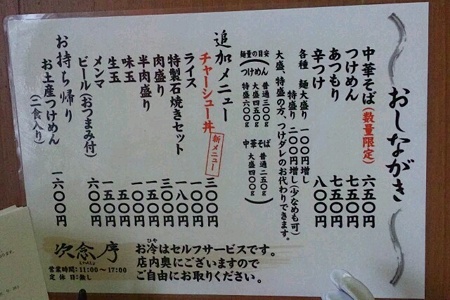 おしながき
中華そば(数量限定) 六五〇円
つけめん 七五〇円
あつもり 七五〇円
辛つけ 八〇〇円
各種 麺大盛り 一〇〇円増し
特盛り 二〇〇円増し(少なめも可)
大盛、特盛の方、つけダレのお代わりできます。
麺量の目安
つけめん
普通 三〇〇g
大盛 四五〇g
特盛 六〇〇g
中華そば
普通 二五〇g
大盛 四〇〇g
追加メニュー
チャーシュー丼 新メニュー 三〇〇円
ライス 一〇〇円
特製石焼きセット
肉盛り
半肉盛り
味玉 一〇〇円
生玉 五〇円
メンマ 一〇〇円
ビール(おつまみ付) 六〇〇円
お持ち帰り
お土産つけめん 一六〇〇円
(二食入り)
次念序
営業時間:11:00～17:00
定休日:無し
お冷はセルフサービスです。
ひや
店内奥にございますので
ご自由にお取りください。